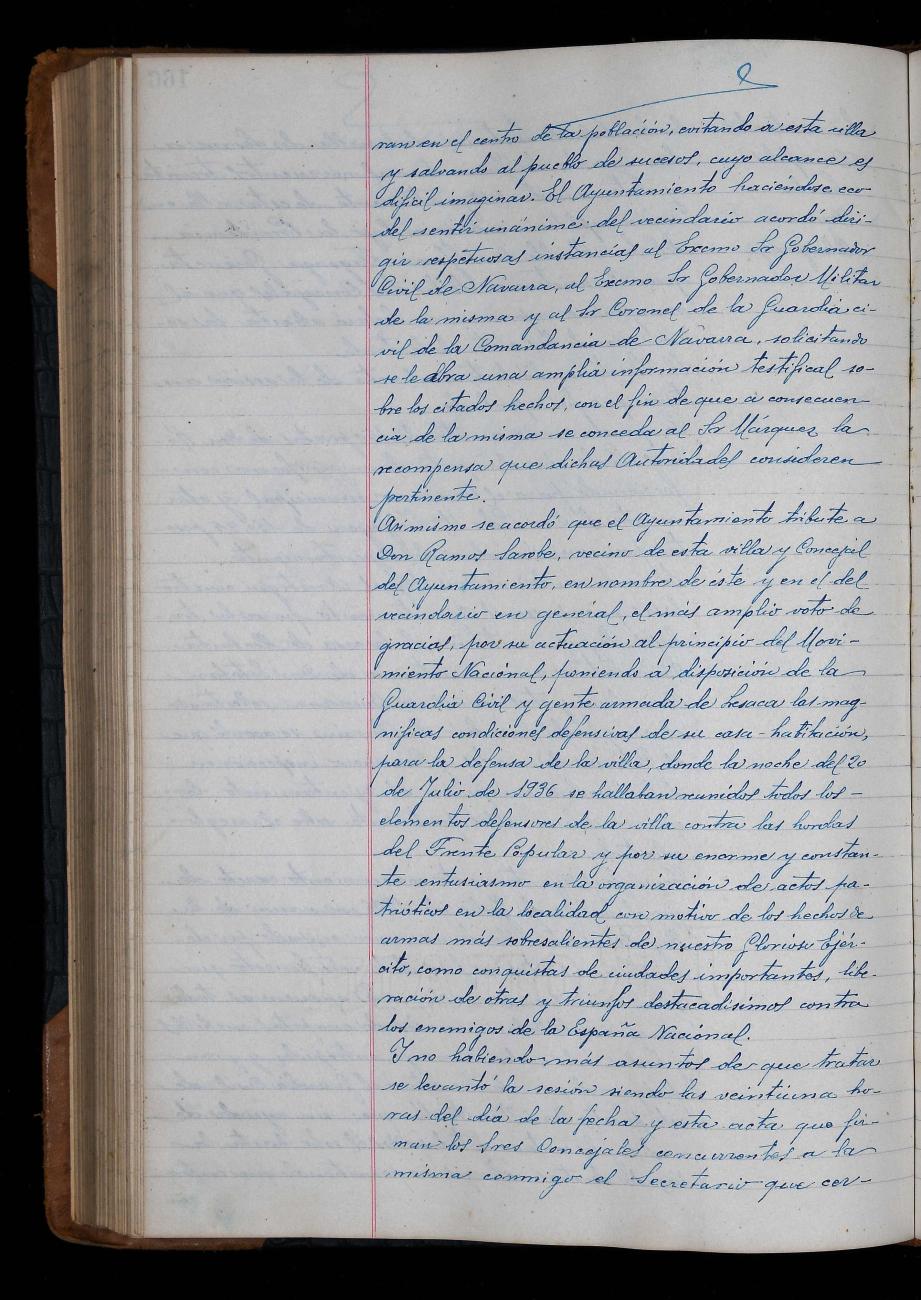 ran en el centro de la población, evitando a esta villa
y salvando al pueblo de sucesos, cuyo alcance es
dificil imaginar. El Ayuntamiento haciéndose eco
del sentir unánime del vecindario acordó diri-
gir respetuosas instancias al Excmo Sr Gobernador
Civil de Navarra, al Excmo Sr Gobernador Militar
de la misma y al Sr Coronel de la Guardia ci-
vil de la Comandancia de Navarra, solicitando
se le abra una amplia información testifical so-
bre los citados hechos, con el fin de que a consecuen-
cia de la misma se conceda al Sr Márquez la
recompensa que dichas Autoridades consideren
pertinente.
Asimismo se acordó que el Ayuntamiento tribute a
Don Ramos Sarobe, vecino de esta villa y Concejal
del Ayuntamiento, en nombre de éste y en el del
vecindario en general, el más amplio voto de
gracias, por su actuación al principio del Movi-
miento Nacional, poniendo a disposición de la
Guardia Civil y gente armada de Lesaca las mag-
nificas condiciones defensivas de su casa-habitación,
para la defensa de la villa, donde la noche del 20
de Julio de 1936 se hallaban reunidos todos los-
elementos defensores de la villa contra las hordas
del Frente Popular y por su enorme y constan-
te entusiasmo en la organización de actos pa-
trióticos en la localidad con motivo de los hechos de
armas más sobresalientes de nuestro Glorioso Ejér-
cito, como conquistas de ciudades importantes, libe-
ración de otras y triunfos destacadísimos contra
los enemigos de la España Nacional.
Y no habiendo más asuntos de que tratar
se levantó la sesión siendo las veintiuna ho-
ras del día de la fecha y esta acta que fir-
man los Sres Concejales concurrentes a la
misma conmigo el Secretario que cer-